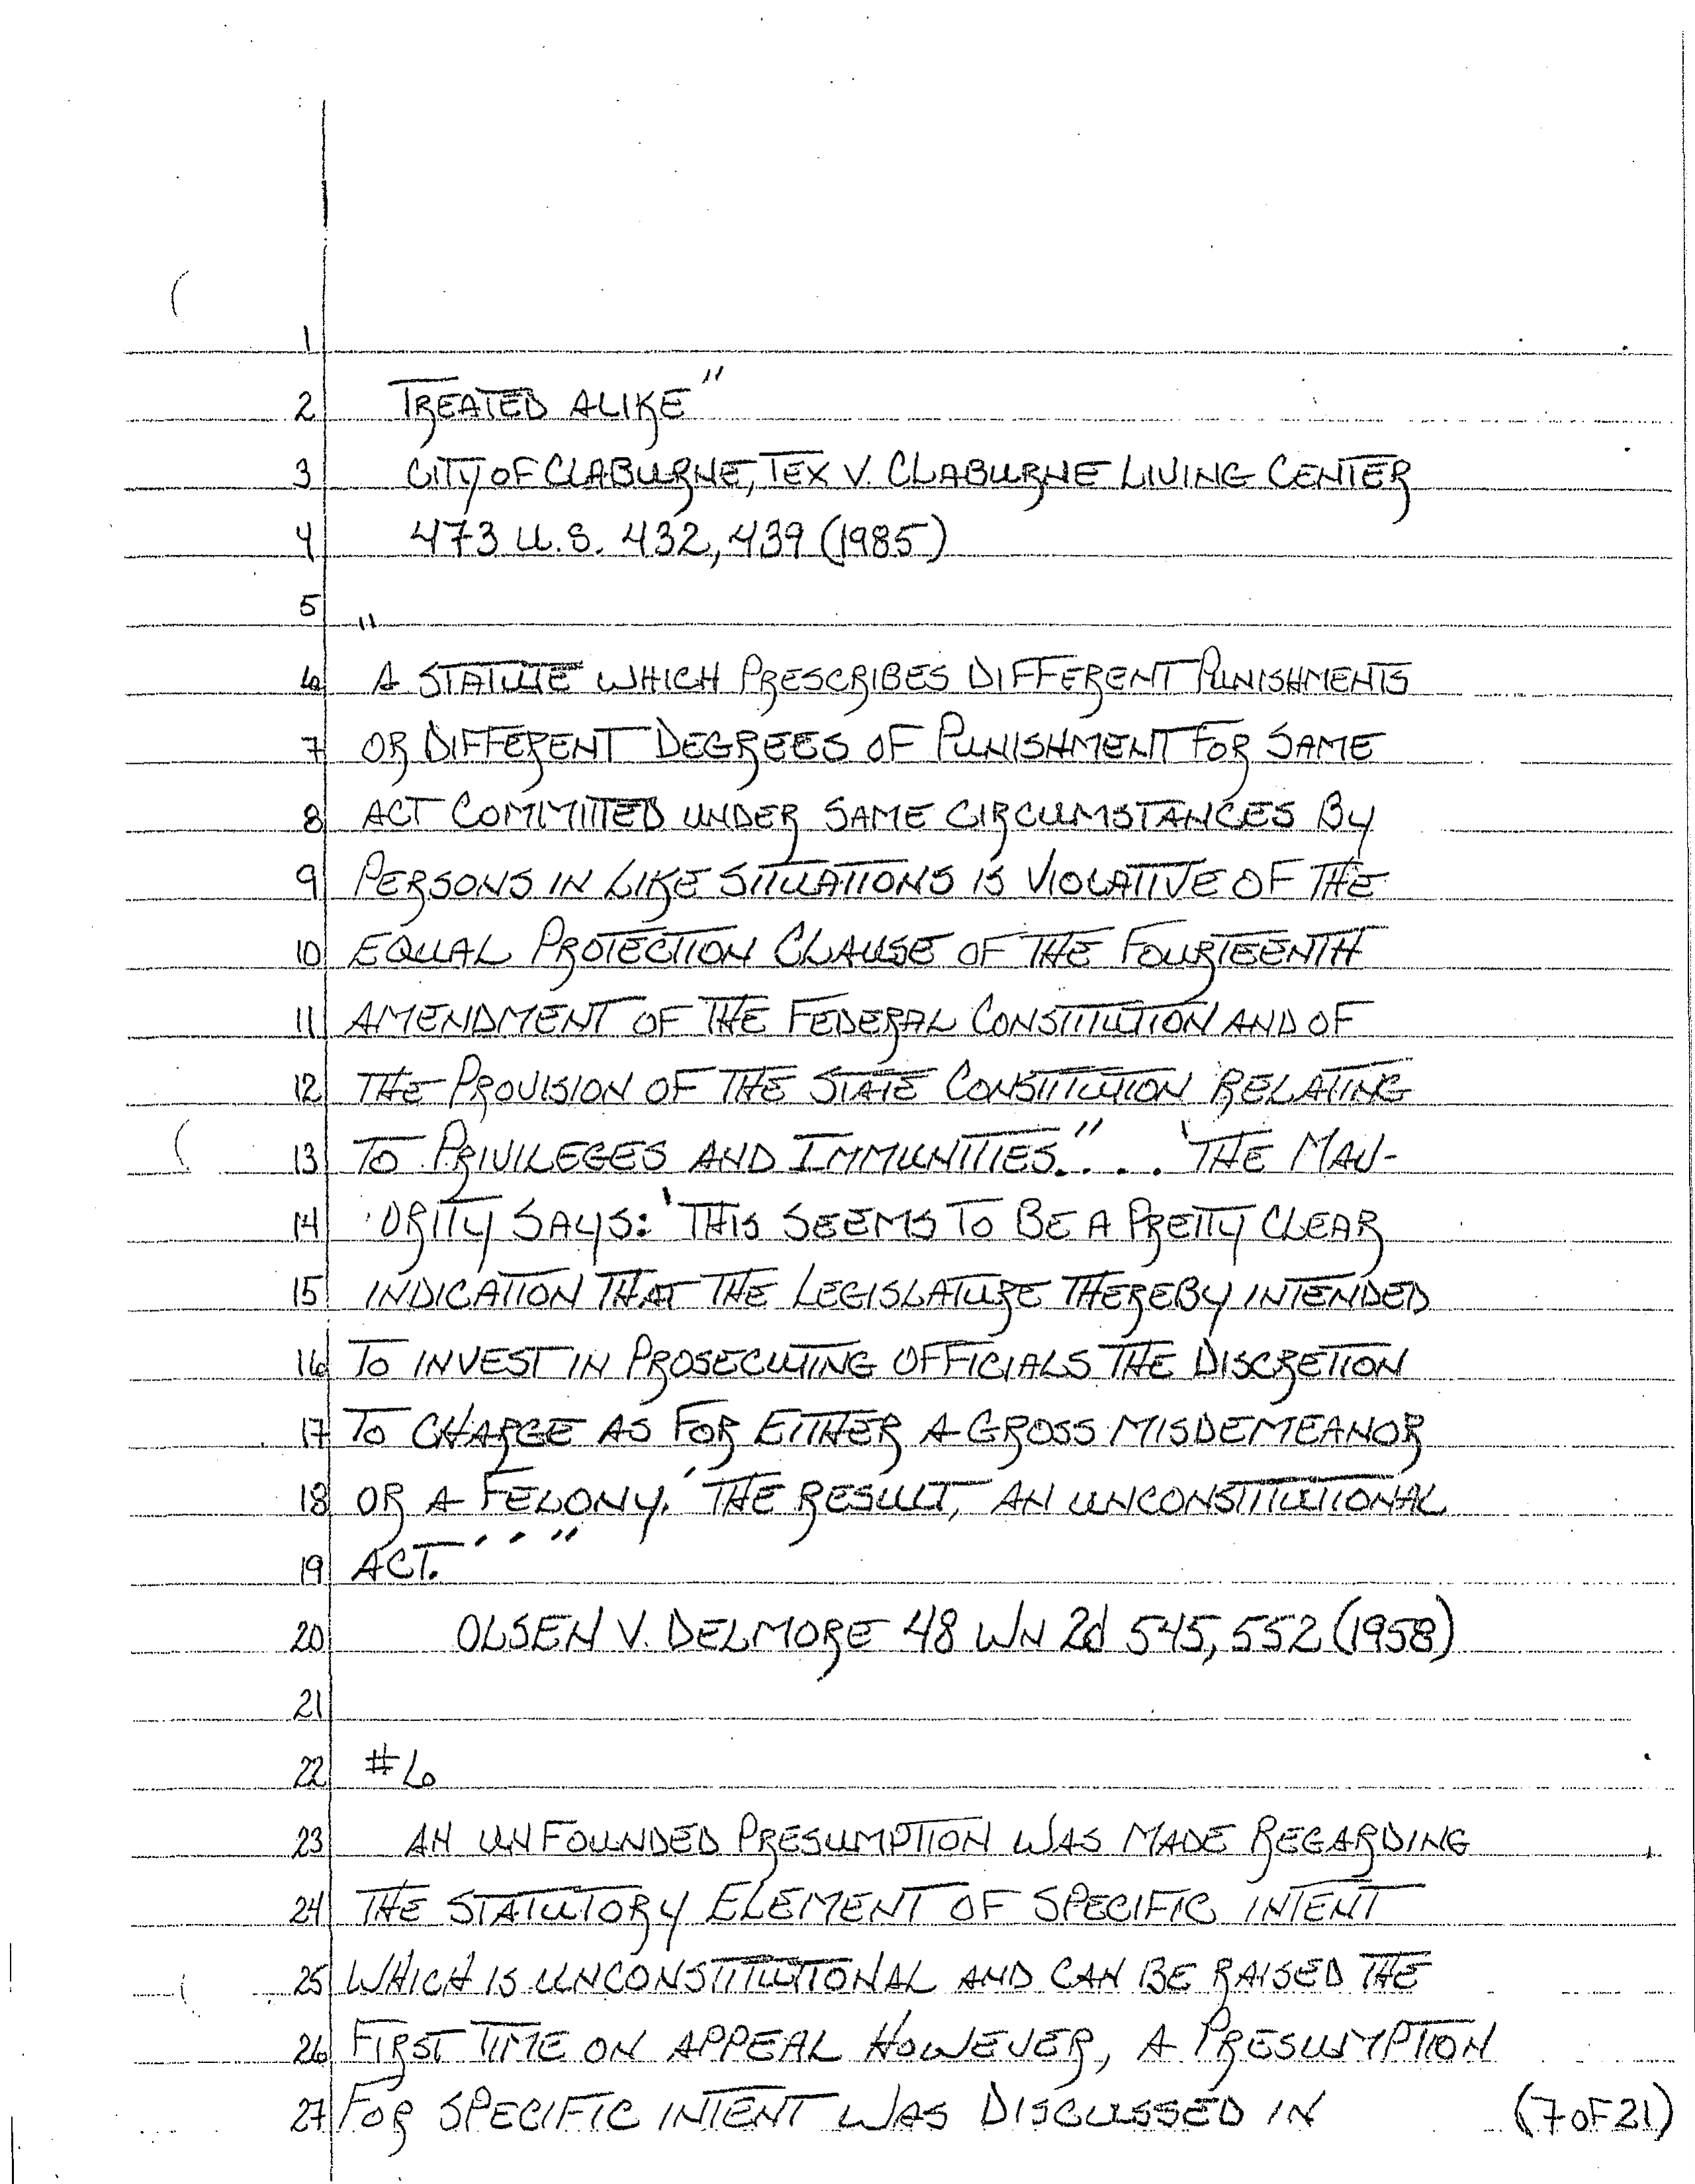 1
2 TREATED ALIKE"
3 CITY OF CLABURNE, TEX V. CLABURNE LIVING CENTER
4 473 U.S. 432, 439 (1985)
5 "
6 A STATUTE WHICH PRESCRIBES DIFFERENT PUNISHMENTS
7 OR DIFFERENT DEGREES OF PUNISHMENT FOR SAME
8 ACT COMMITTED UNDER SAME CIRCUMSTANCES BY
9 PERSONS IN LIKE SITUATIONS IS VIOLATIVE OF THE
10 EQUAL PROTECTION CLAUSE OF THE FOURTEENTH
11 AMENDMENT OF THE FEDERAL CONSTITUTION AND OF
12 THE PROVISION OF THE STATE CONSTITUTION RELATING
13 TO PRIVILEGES AND IMMUNITIES." . . . 'THE MAJ-
14 ORITY SAYS: 'THIS SEEMS TO BE A PRETTY CLEAR
15 INDICATION THAT THE LEGISLATURE THEREBY INTENDED
16 TO INVEST IN PROSECUTING OFFICIALS THE DISCRETION
17 TO CHARGE AS FOR EITHER A GROSS MISDEMEANOR
18 OR A FELONY.' THE RESULT, AN UNCONSTITUTIONAL
19 ACT.' ' "
20 OLSEN V. DELMORE 48 WN 2d 545, 552 (1958)
21
22 #6
23 AN UNFOUNDED PRESUMPTION WAS MADE REGARDING
24 THE STATUTORY ELEMENT OF SPECIFIC INTENT
25 WHICH IS UNCONSTITUTIONAL AND CAN BE RAISED THE
26 FIRST TIME ON APPEAL HOWEVER, A PRESUMPTION
27 FOR SPECIFIC INTENT WAS DISCUSSED IN (7 OF 21)